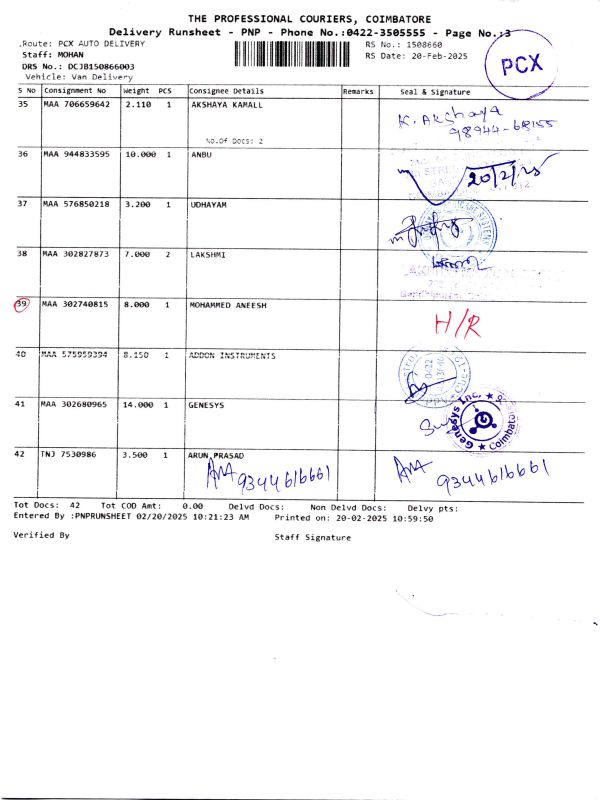 THE PROFESSIONAL COURIERS, COIMBATORE
Delivery Runsheet - PNP - Phone No.:0422-3505555 - Page No.:3
Route: PCX AUTO DELIVERY
RS No.: 1508660
Staff: MOHAN
RS Date: 20-Feb-2025
PCX
DRS No.: DCJB150866003
Vehicle: Van Delivery
S No Consignment No Weight PCS Consignee Details Remarks Seal & Signature
35 MAA 706659642 2.110 1 AKSHAYA KAMALL
No.Of Docs: 2
K. Akshaya
98944-68155
36 MAA 944833595 10.000 1 ANBU
20/2/25
37 MAA 576850218 3.200 1 UDHAYAM
38 MAA 302827873 7.000 2 LAKSHMI
39 MAA 302740815 8.000 1 MOHAMMED ANEESH
H/R
40 MAA 575959394 8.150 1 ADDON INSTRUMENTS
41 MAA 302680965 14.000 1 GENESYS
Genesys Inc. ★ Coimbatore
42 TNJ 7530986 3.500 1 ARUN PRASAD
9344616661
9344616661
Tot Docs: 42 Tot COD Amt: 0.00 Delvd Docs: Non Delvd Docs: Delvy pts:
Entered By :PNPRUNSHEET 02/20/2025 10:21:23 AM Printed on: 20-02-2025 10:59:50
Verified By Staff Signature